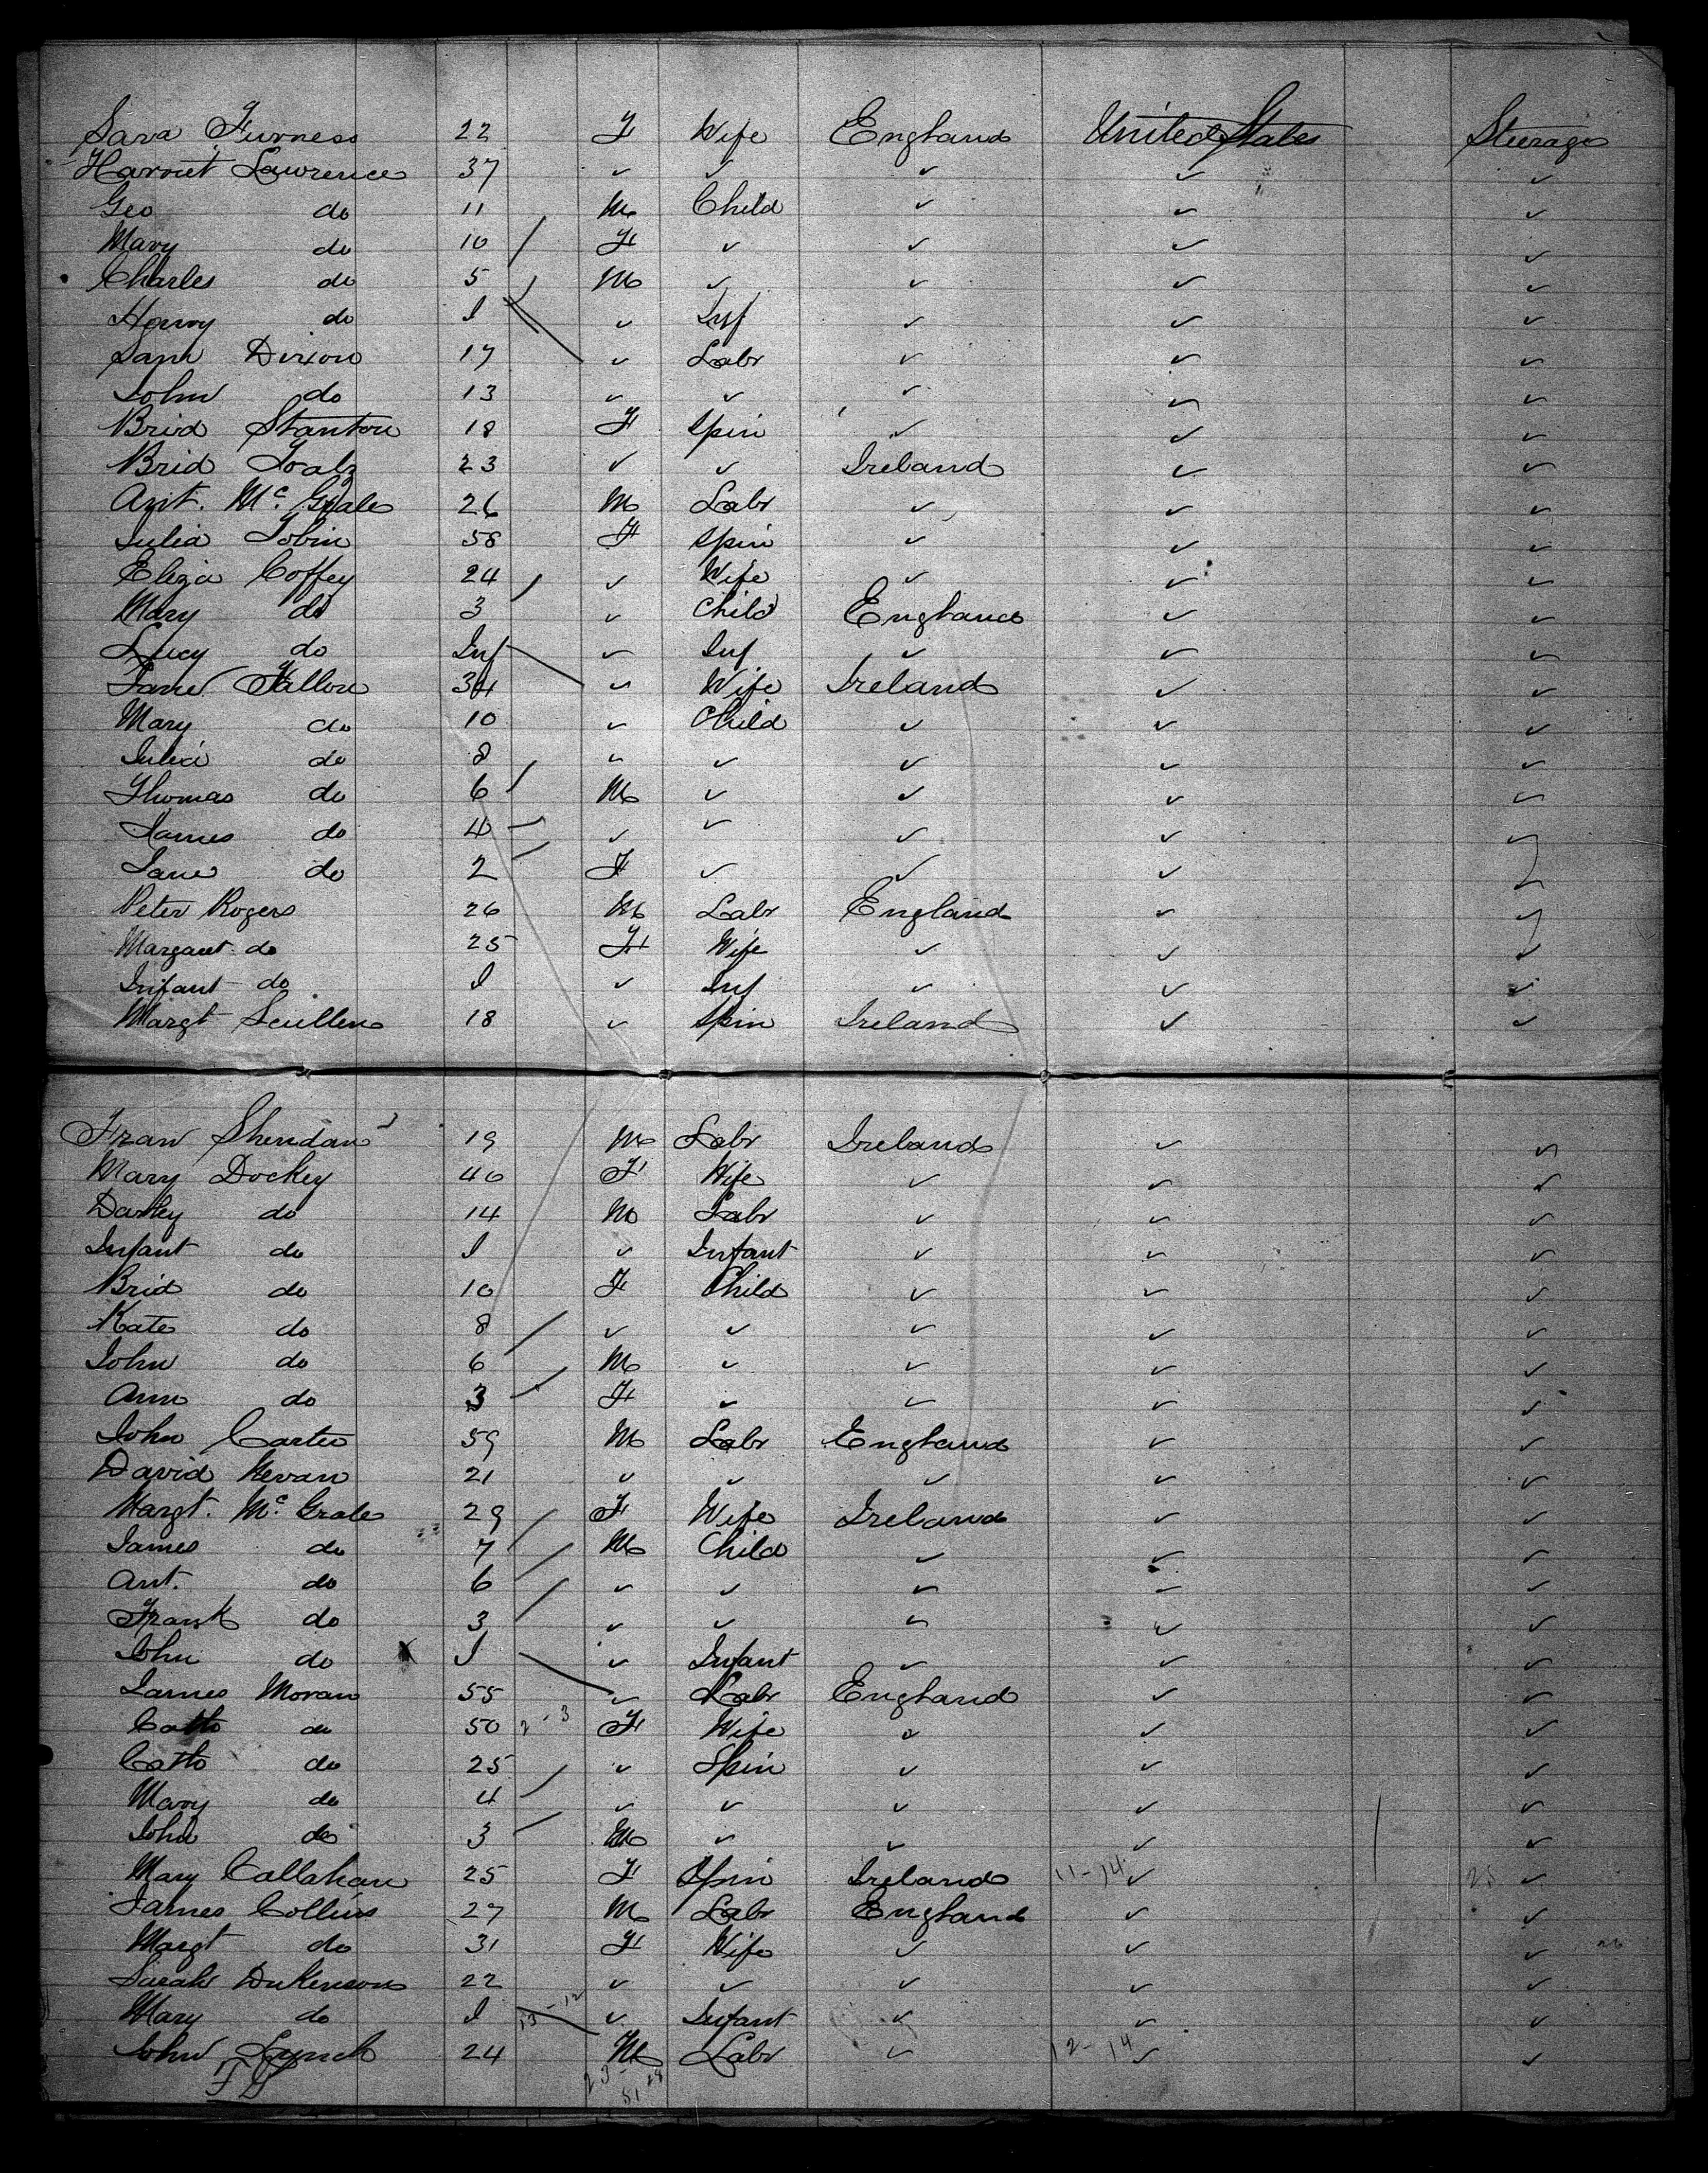 Sara Furness 22 F Wife England United States Steerage
Harriet Lawrence 37 ✓ ✓ ✓ ✓ ✓
Geo do 11 M Child ✓ ✓ ✓
Mary do 10 F ✓ ✓ ✓ ✓
Charles do 5 M ✓ ✓ ✓ ✓
Harry do I ✓ Inf ✓ ✓ ✓
Sam Dixon 17 ✓ Labr ✓ ✓ ✓
John do 13 ✓ ✓ ✓ ✓ ✓
Brid Stanton 18 F Spin ✓ ✓ ✓
Brid 23 ✓ ✓ Ireland ✓ ✓
Ant. Mc Grale 26 M Labr ✓ ✓ ✓
Julia Tobin 58 F Spin ✓ ✓ ✓
Eliza Coffey 24 ✓ Wife ✓ ✓ ✓
Mary do 3 ✓ Child England ✓ ✓
Lucy do Inf ✓ Inf ✓ ✓ ✓
Jane Fallon 34 ✓ Wife Ireland ✓ ✓
Mary do 10 ✓ Child ✓ ✓ ✓
Julia do 8 ✓ ✓ ✓ ✓ ✓
Thomas do 6 M ✓ ✓ ✓ ✓
James do 4 ✓ ✓ ✓ ✓ ✓
Jane do 2 F ✓ ✓ ✓ ✓
Peter Rogers 26 M Labr England ✓ ✓
Margaret do 25 F Wife ✓ ✓ ✓
Infant do I ✓ Inf ✓ ✓ ✓
Margt Scullen 18 ✓ Spin Ireland ✓ ✓
Fran Sheridan 19 M Labr Ireland ✓ ✓
Mary Dockey 40 F Wife ✓ ✓ ✓
Darkey do 14 M Labr ✓ ✓ ✓
Infant do I ✓ Infant ✓ ✓ ✓
Brid do 10 F Child ✓ ✓ ✓
Kate do 8 ✓ ✓ ✓ ✓ ✓
John do 6 M ✓ ✓ ✓ ✓
Ann do 3 F ✓ ✓ ✓ ✓
John Carter 59 M Labr England ✓ ✓
David Kevan 21 ✓ ✓ ✓ ✓ ✓
Margt. Mc Grale 29 F Wife Ireland ✓ ✓
James do 7 M Child ✓ ✓ ✓
Ant. do 6 ✓ ✓ ✓ ✓ ✓
Frank do 3 ✓ ✓ ✓ ✓ ✓
John do I ✓ Infant ✓ ✓ ✓
James Moran 55 ✓ Labr England ✓ ✓
Cath do 50 2-3 F Wife ✓ ✓ ✓
Cath do 25 ✓ Spin ✓ ✓ ✓
Mary do 4 ✓ ✓ ✓ ✓ ✓
John do 3 M ✓ ✓ ✓ ✓
Mary Callahan 25 F Spin Ireland 11-14 ✓ 25 ✓
James Collins 27 M Labr England ✓ ✓
Margt do 31 F Wife ✓ ✓ ✓
Sarah Dukenson 22 ✓ ✓ ✓ ✓ ✓
Mary do I 13-12 ✓ Infant ✓ ✓ ✓
John Lynch 24 M Labr ✓ 12-14 ✓ ✓